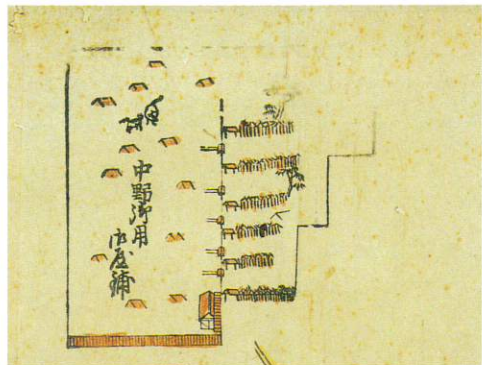 中野御用
御屋鋪